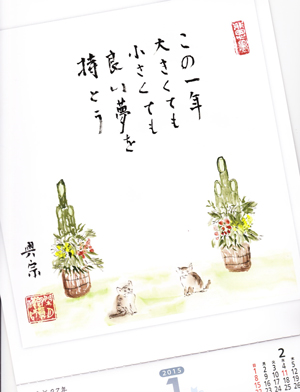 この一年
大きくても
小さくても
良い夢を
持とう
興宗
2015
1
2